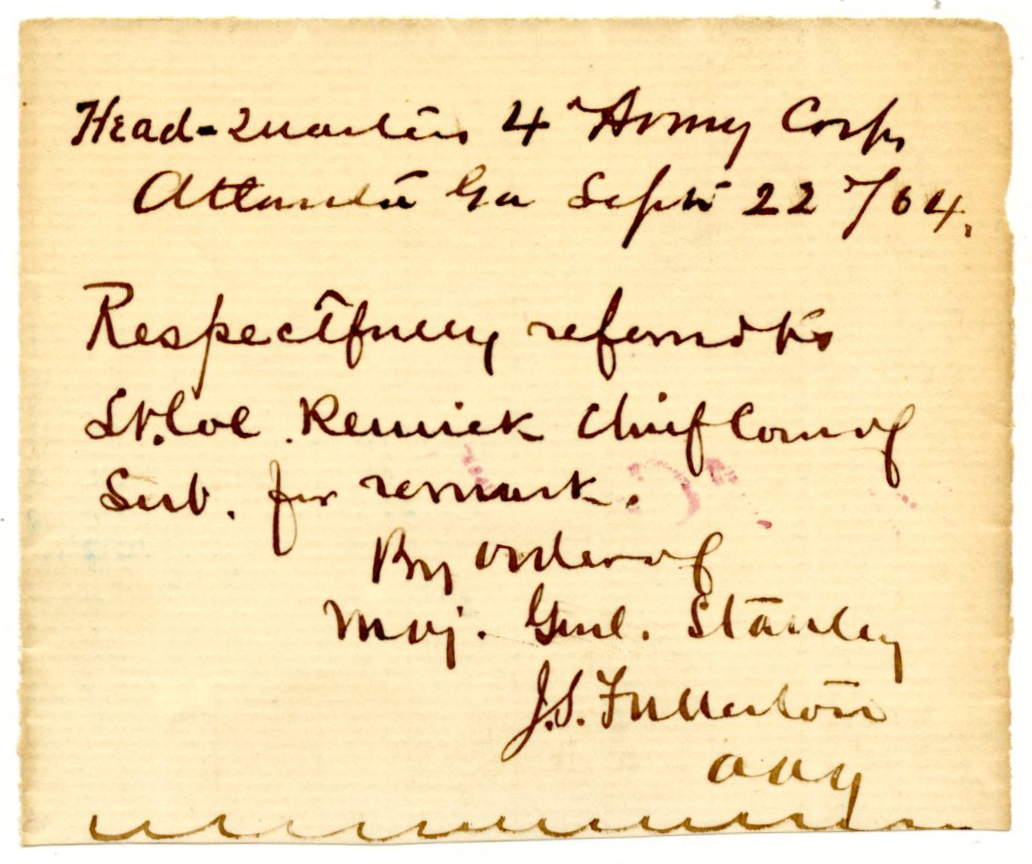 Head-Quarters 4" Army Corps
Atlanta Ga Sept 22"/64.
Respectfully referred to
Lt. Col. Remick Chief Com of
Sub. for remark.
By order of
Maj. Genl. Stanley
J.S. Fullerton
AAG